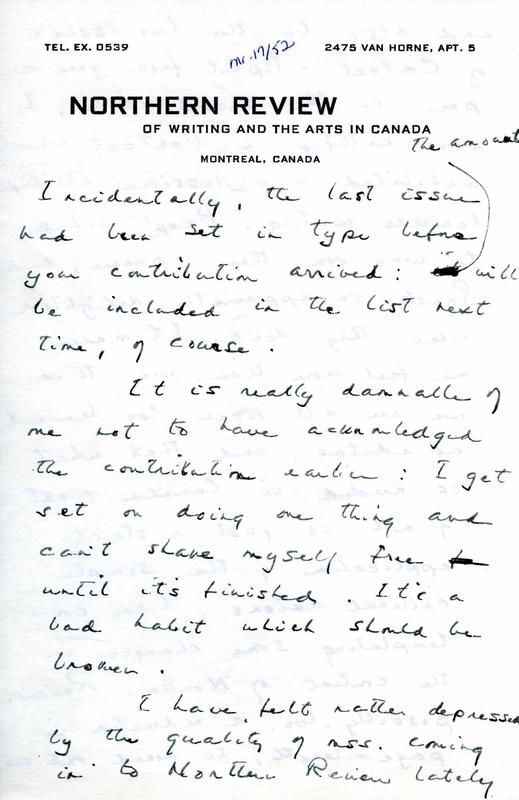 TEL. EX. 0539
mr. 17/52
2475 VAN HORNE, APT. 5
NORTHERN REVIEW
OF WRITING AND THE ARTS IN CANADA
MONTREAL, CANADA
the amount
Incidentally, the last issue
had been set in type before
your contribution arrived: will
be included in the list next
time, of course.
It is really damnable of
me not to have acknowledged
the contribution earlier: I get
set on doing one thing and
can't shake myself free
until it's finished. It's a
bad habit which should be
broken.
I have felt rather depressed
by the quality of mss. coming
in to Northern Review lately